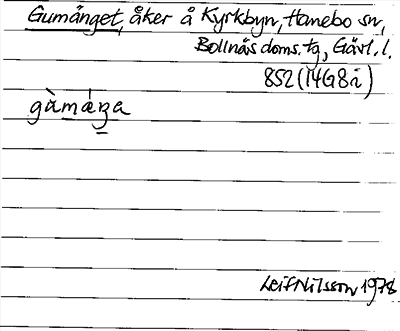 Gumänget, åker å Kyrkbyn, Hanebo sn,
Bollnäs doms. tg, Gävl. l.
852 (14G8i)
gùmǽŋa
Leif Nilsson 1978